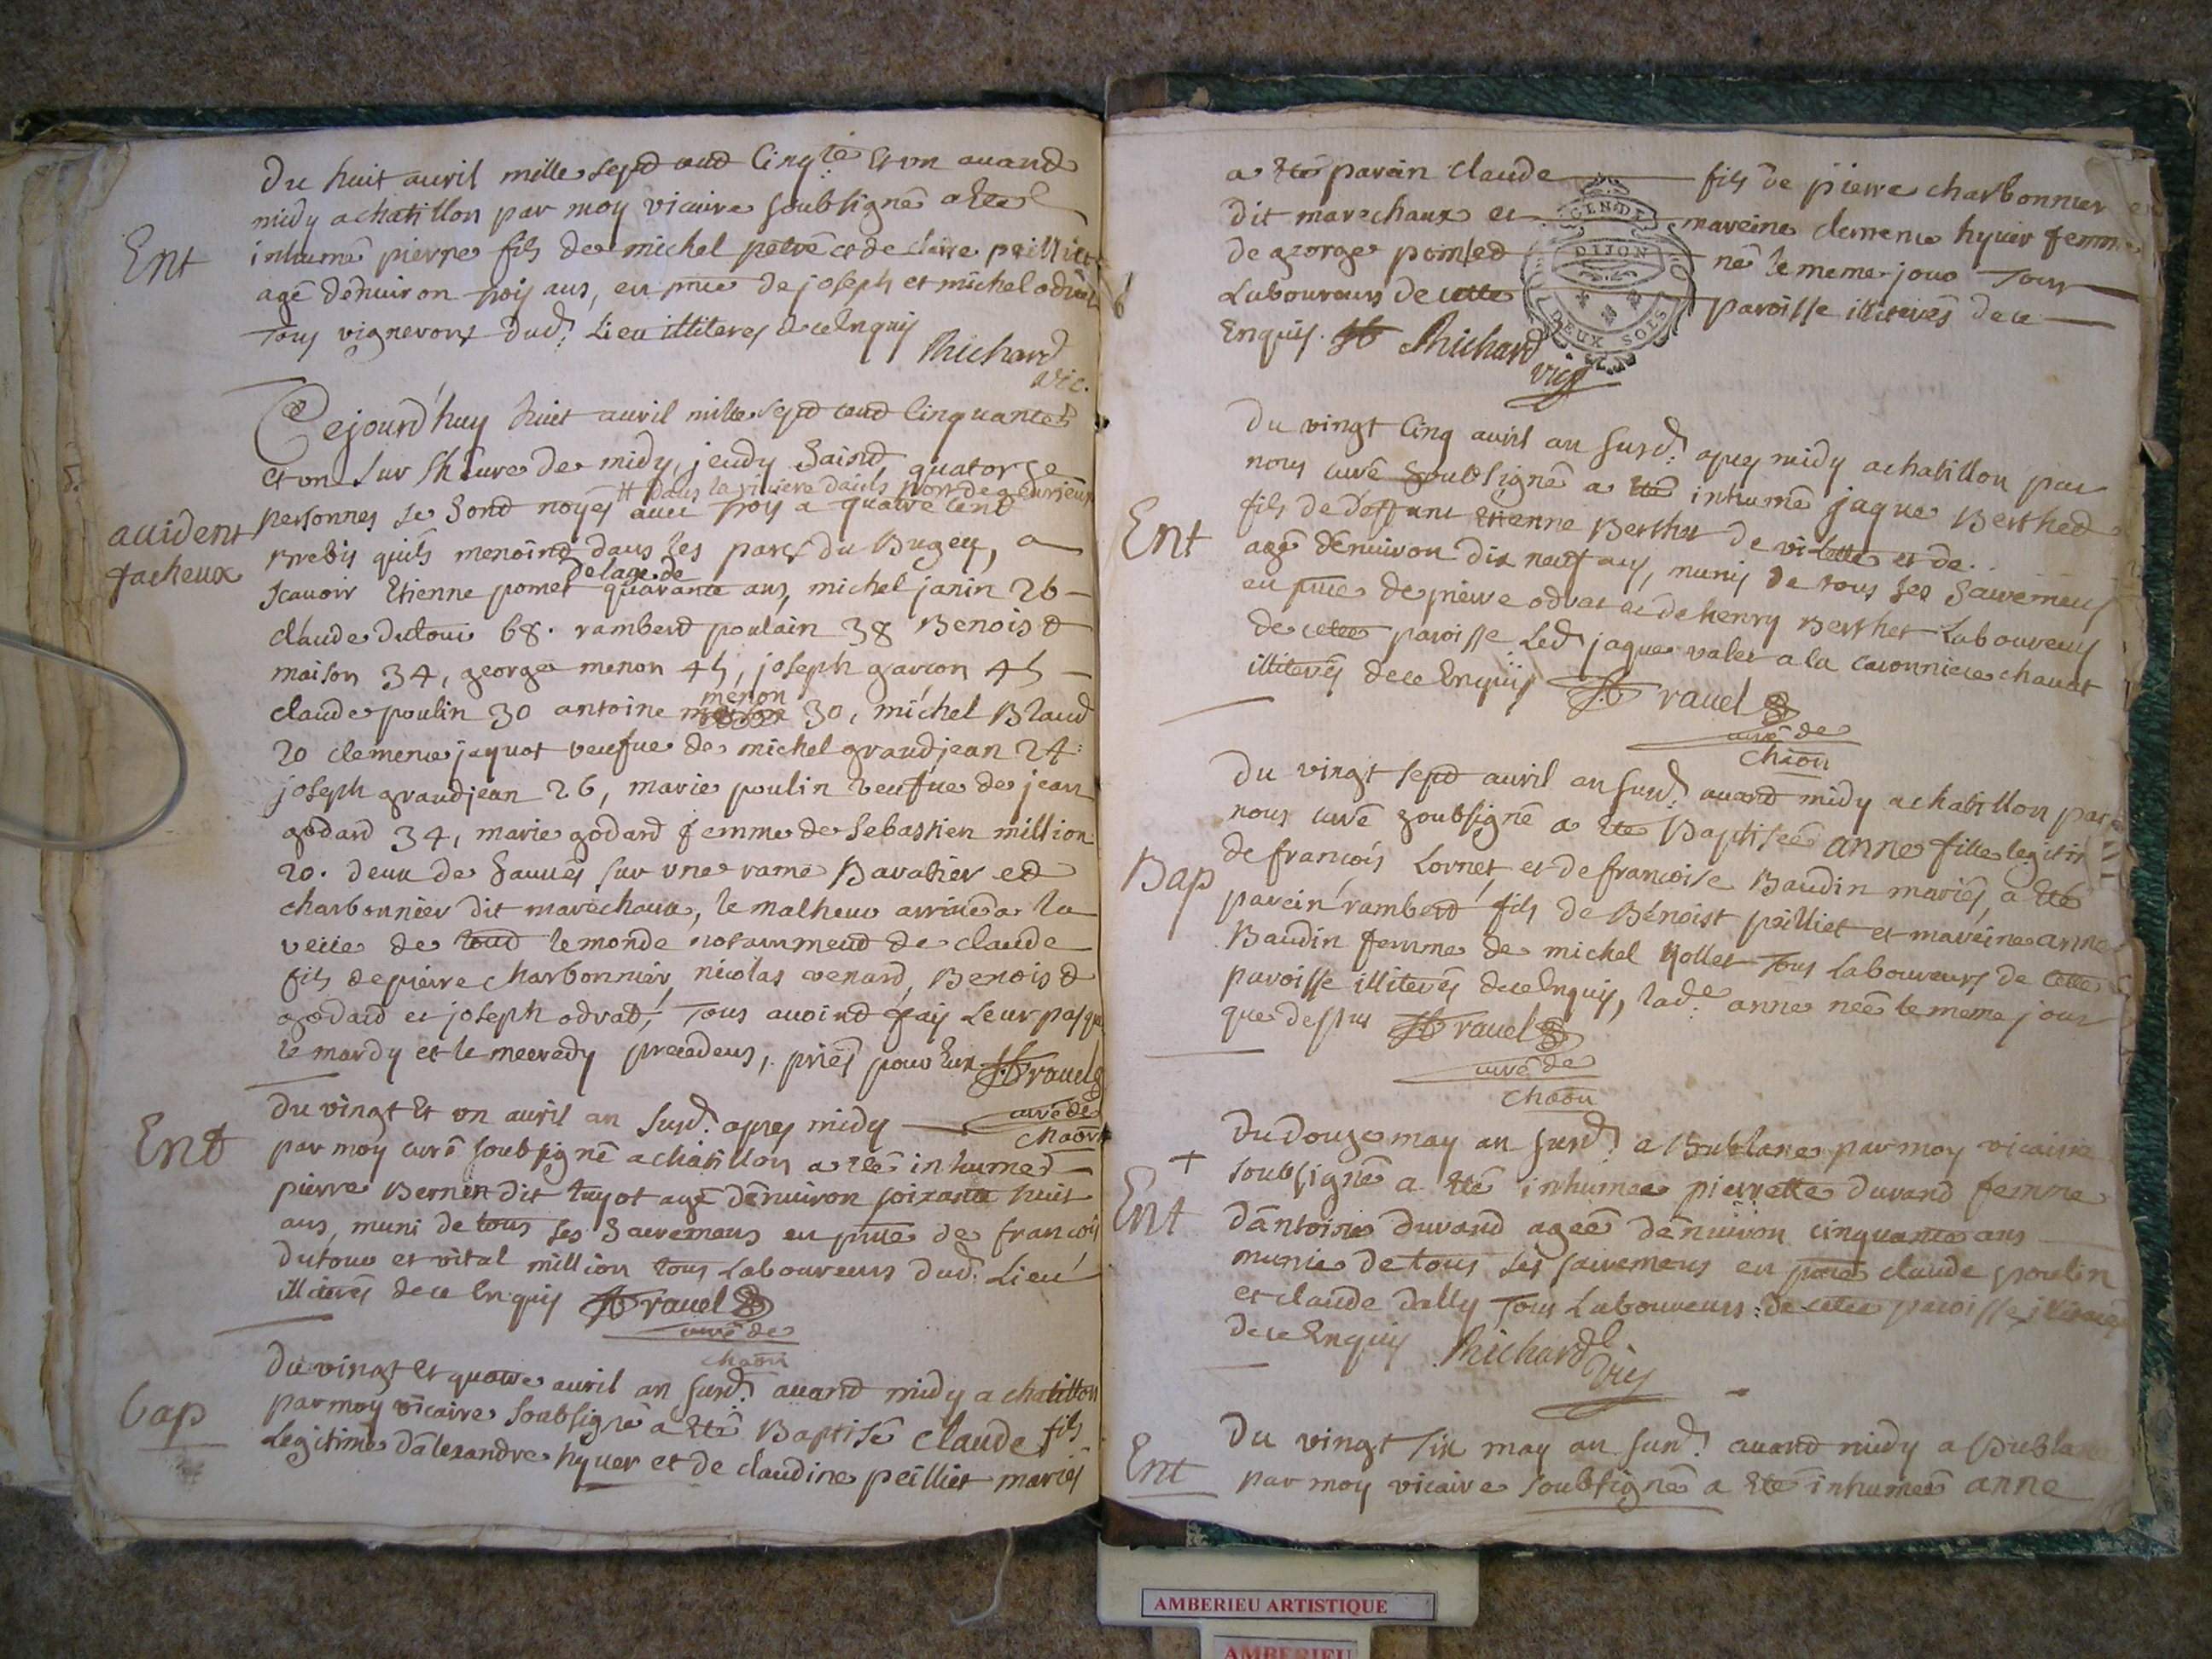 Du huit avril mille sept cent cinq.te et un avand
midy a chatillon par moy vicaire soubsigné a eté
Ent
inhumé pierre fils de michel et de claire peilliet
agé dénuiron troij ans, en pnce de joseph et michel odra
Tous vignerons dud. Lieu illiteres de ce Enquis
Richard
vic.
Cejourd'huy huit avril mille sept cend Cinquante
et un sur l'heure de midy, jeudy Saind, quatorze
# dans la riviere dains port de
accident facheux
personnes se sond noyés avec troij a quatre cend
Brebis quils menoind dans les parc du Bugey, a
de lage de
scavoir Etienne pomet quarante ans, michel janin 26
claude dutour 68. ramberd poulain 38 Benoisd
maison 34, george menon 45, joseph garcon 45
menon
claude poulin 30 antoine 30, michel Blaud
20 clemence jaquot veufue de michel grandjean 24
joseph grandjean 26, marie poulin veufue de jean
godard 34, marie godard femme de Sebastien million
20. deux de Sauvés sur une rame Baratier ed
charbonnier dit marechaux, le malheur arriva a la
veüe de toud le monde notammend de claude
fils de pierre charbonnier, nicolas venard, Benoisd
godard et joseph odrad, Tous avoind fay Leur pasque
le mardy et le mecredy precedens, priés pour Eux ravel
curé de
chaon
Ent
Du vingt et un avril an surd. apres midy
par moy curé soubsigné a chatillon a eté inhumé
pierre Bernin dit tuyot agé dénuiron soixante huit
ans, muni de tous ses Sacremens en pnce de francois
dutour et vital million tous Laboureurs dud. Lieu
illiterés de ce Enquis ravel
curé de
chaon
Bap
Du vingt et quatre avril an surd. avand midy a chatillon
par moy vicaire soubsigné a eté Baptisé claude fils
Legitime dálexandre hyuer et de claudine peilliet mariés
a eté parein claude fils de pierre charbonnier
dit marechaux et mareine clemence hyuer femme
de george pomed né le meme jour Tous
Laboureurs de cette paroisse illiterés de ce
Enquis. Richard
vic
GEN DE
DIJON
DEUX SOLS
Du vingt Cinq avril an surd. apres midy a chatillon par
nous curé soubsigné a eté inhumé jaque Berthed
Ent
fils de deffunt etienne Berthet de vilette et de
agé dénuiron dix neuf ans, muny de tous ses Sacremens
en pnce de pierre odrat et de henry Berthet Laboureurs
de cette paroisse Led. jaque valet a la chavat
illiterés de ce Enquis ravel
curé de
chaon
Du vingt sept avril an surd. avand midy a chatillon par
nous curé soubsigné a eté Baptiseé anne fille legiti
Bap
de francois Lornet et de francoise Baudin mariés, a eté
parein ramberd fils de Benoist peilliet et mareine anne
Baudin femme de michel Tous Laboureurs de cette
paroisse illiterés de ce Enquis, lad.e anne neé le meme jour
que dessus ravel
curé de
chaon
Du Douze may an surd. a Bublane par moy vicaire
+
Ent
soubsigné a eté inhumeé pierrette durand femme
dántoine durand ageé dénuiron cinquante ans
munie de tous ses sacremens en pnce claude poulin
et claude dally Tous Laboureurs de cette paroisse illiterés
de ce Enquis Richard
vic
Ent
Du vingt six may an surd. avand midy a Bublane
par moy vicaire soubsigné a eté inhumeé anne
AMBERIEU ARTISTIQUE
AMBERIEU